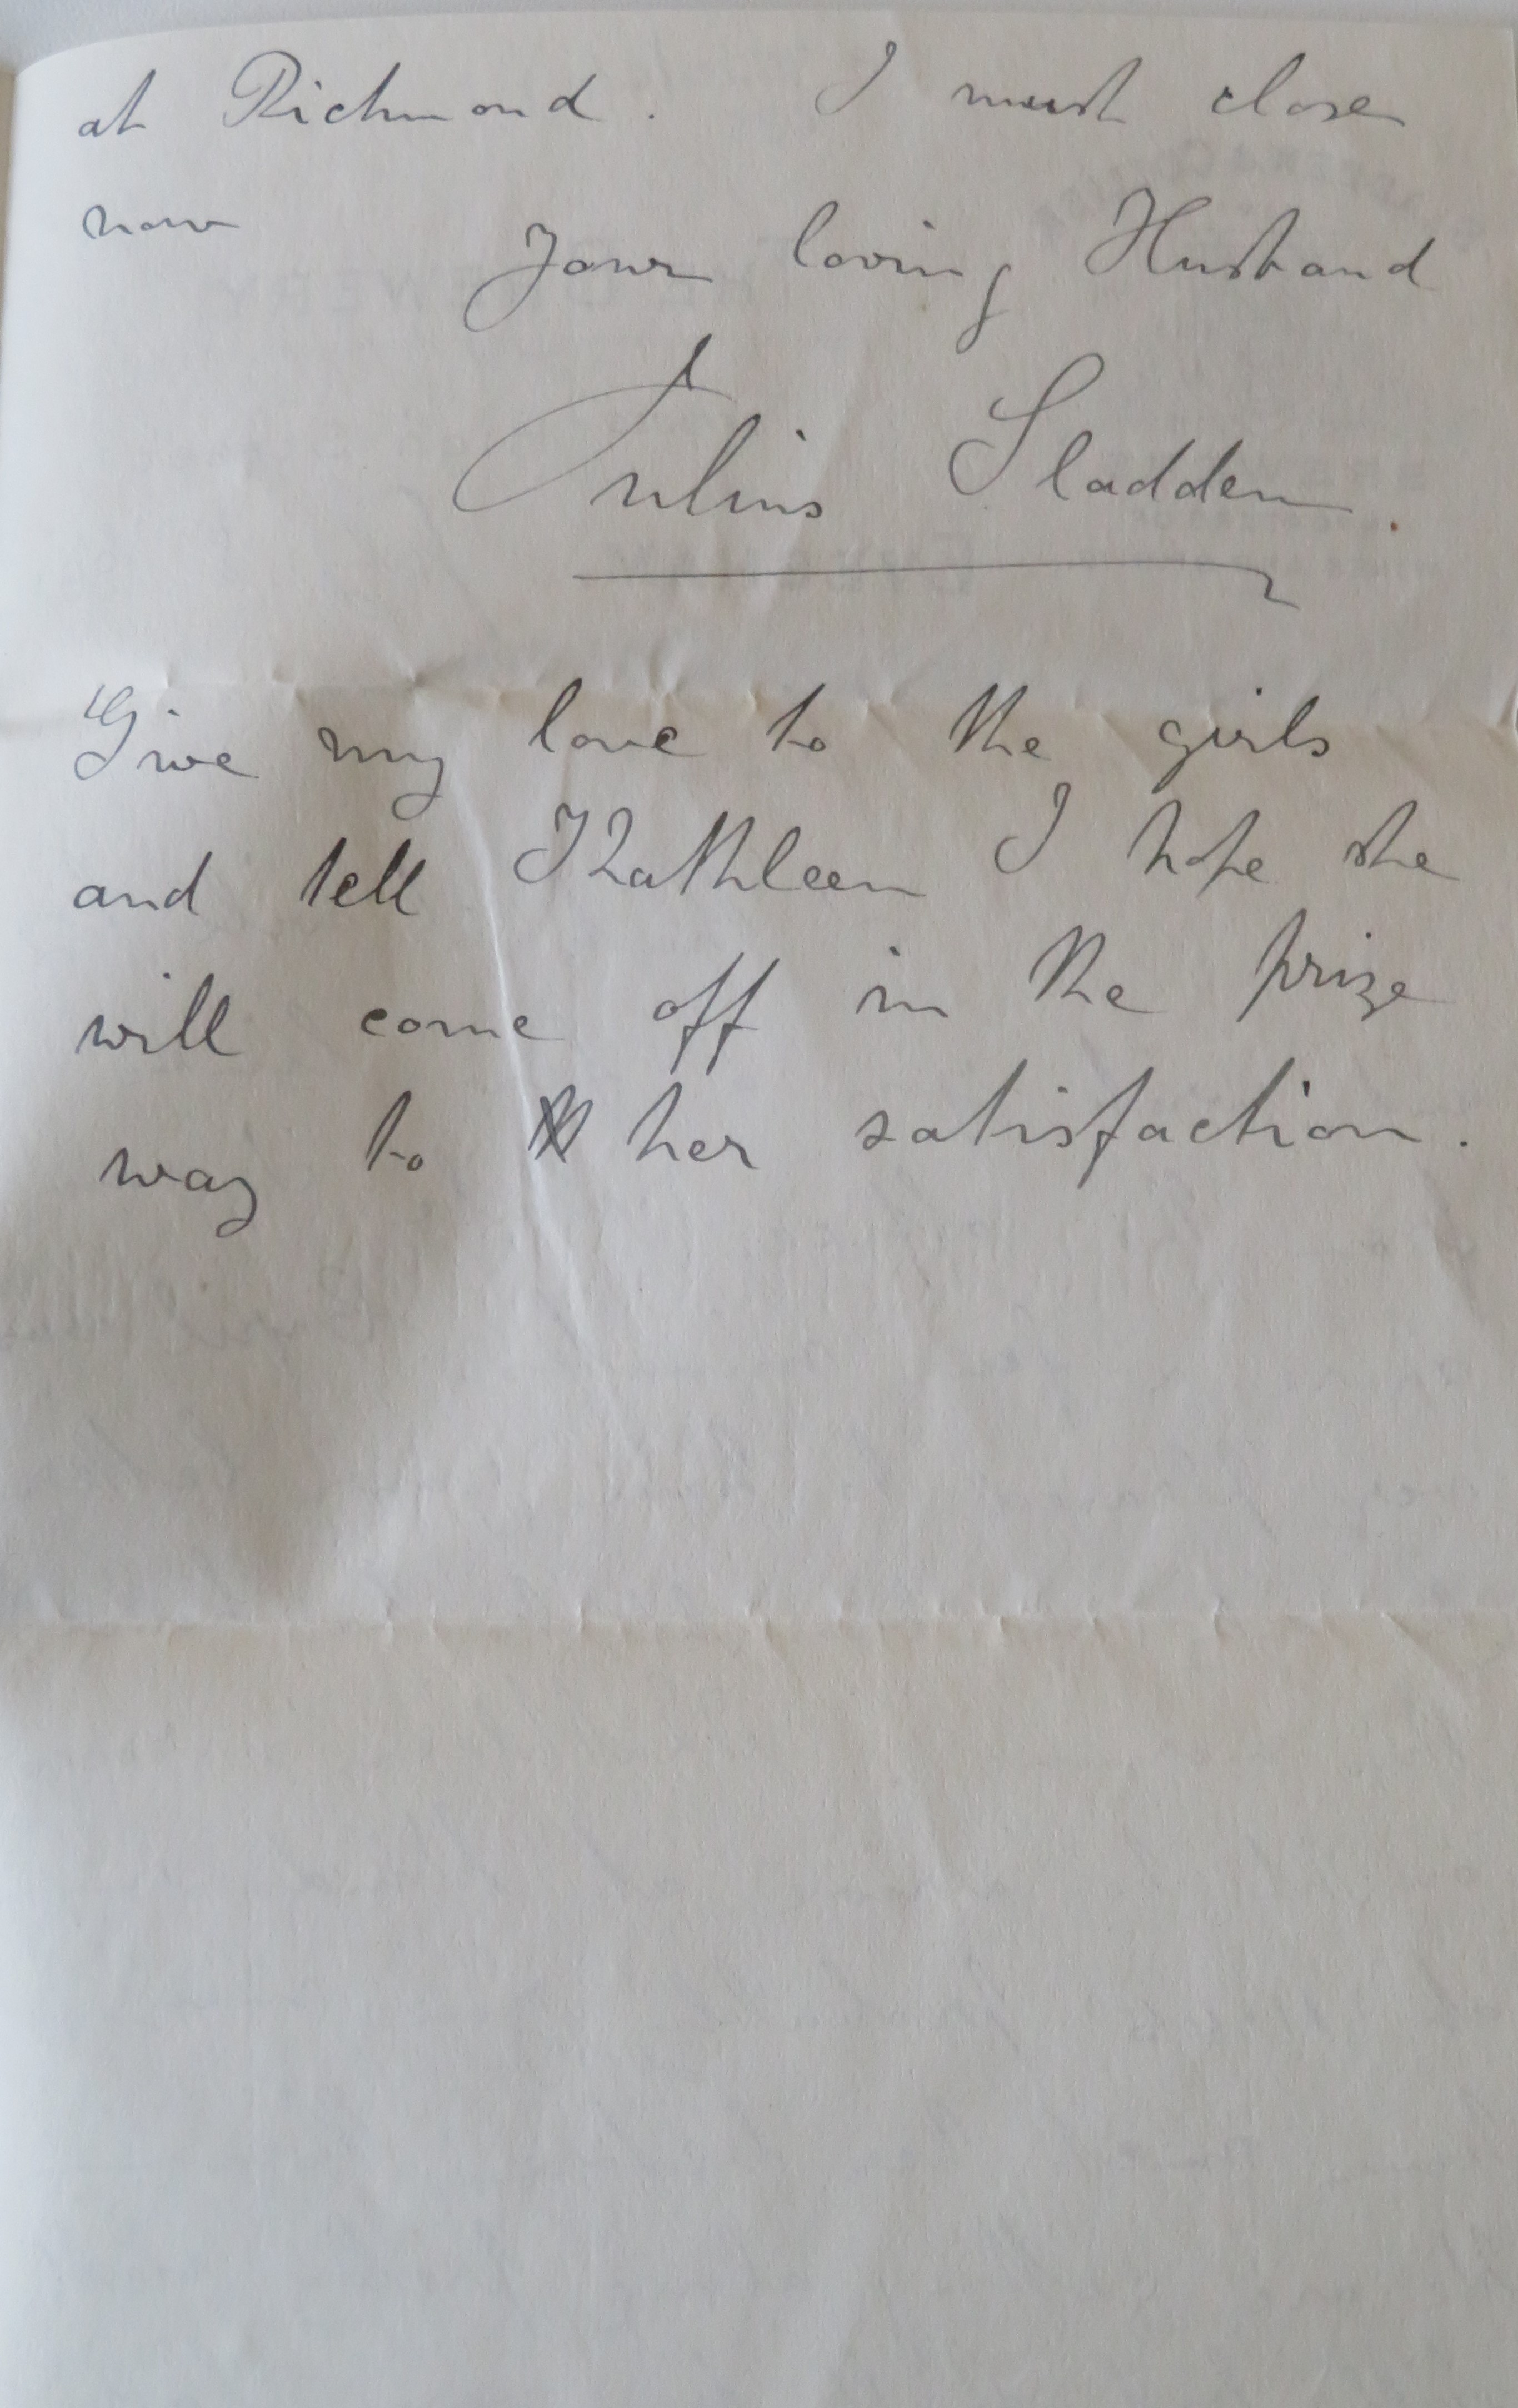 at Richmond. I must close
now
Your loving Husband
Julius Sladden.
Give my love to the girls
and tell Kathleen I hope she
will come off in the prize
way to her satisfaction.